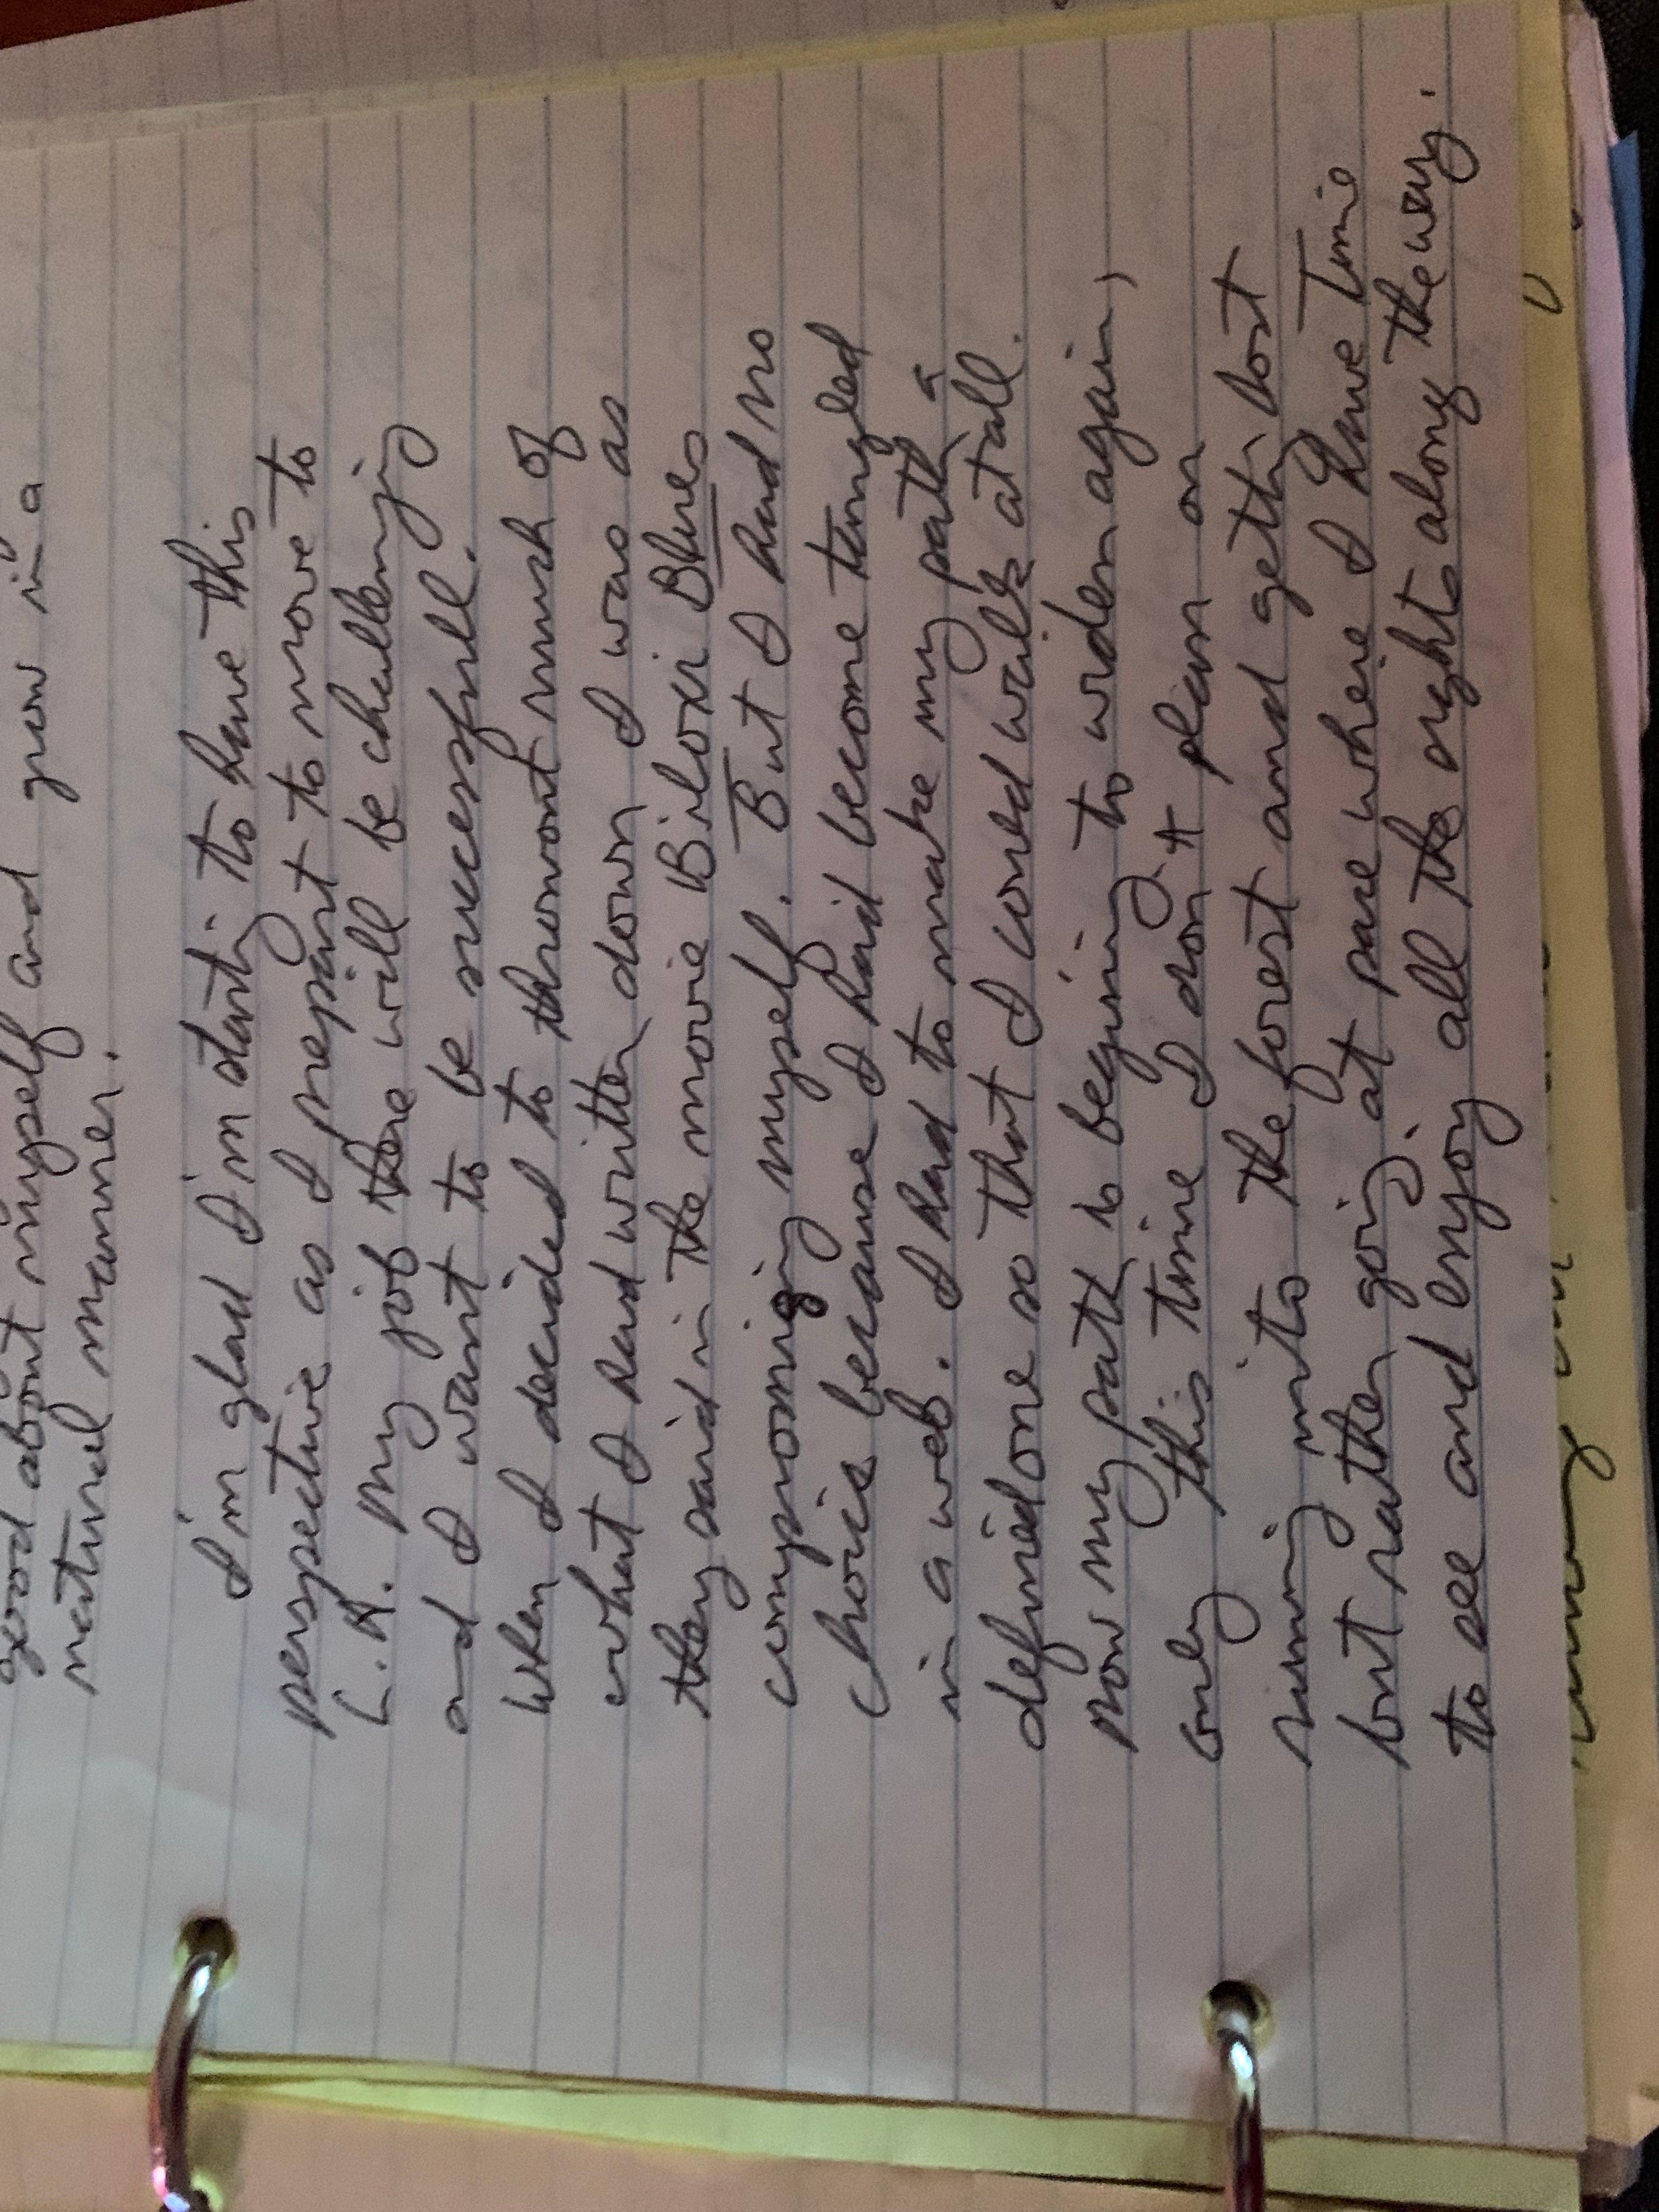 good about myself and grow in a
natural manner.
I'm glad I'm startig to have this
perspective as I prepart to move to
L.A. My job there will be challenging
and I want to be successfull.
When I decided to throwout much of
what I had written down I was as
they said in the movie Biloxi Blues
compromising myself. But I had no
choice because I had become tangled
in a web. I had to make my path a
defined one so that I could walk at all.
Now my path is begining to widen again,
only this time I don't plan on
runing into the forest and getting lost
but rather going at pace where I have time
to see and enjoy all the sights along the way.